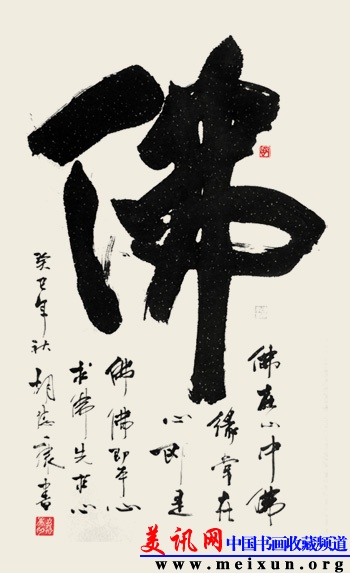 佛
佛在心中佛
缘常在
心即是
佛佛即心
求佛先求心
癸巳年秋胡書
美讯网 中国书画收藏频道
www.meixun.org